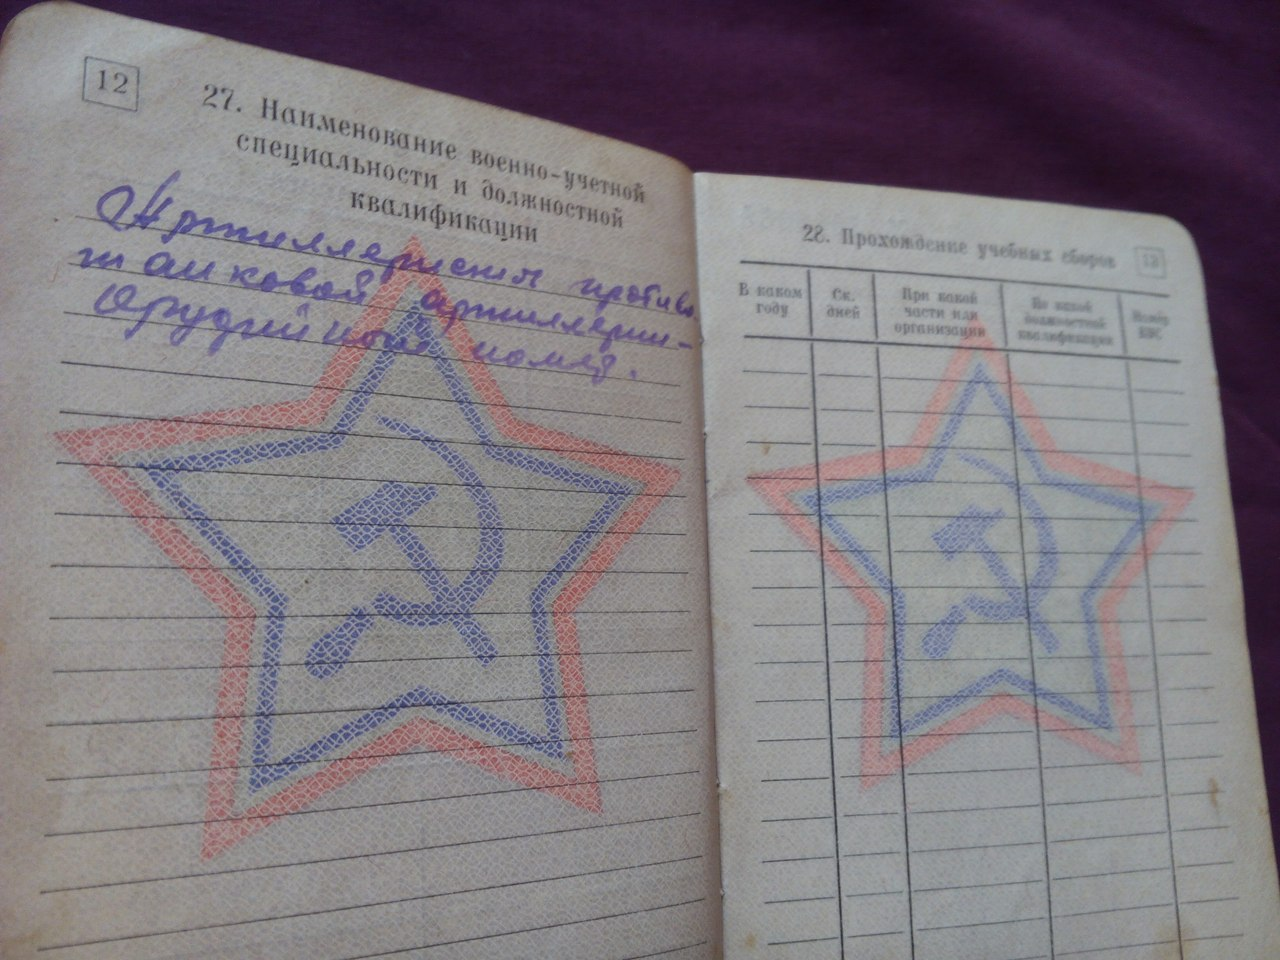 12
27. Наименование военно-учетной
специальности и должностной
квалификации
Артиллерист противо
танковой артиллерии-
Орудийный номер.
28. Прохождение учебных сборов
13
В каком году
Ск. дней
При какой части или организации
По какой должностной квалификации
Номер ВУС